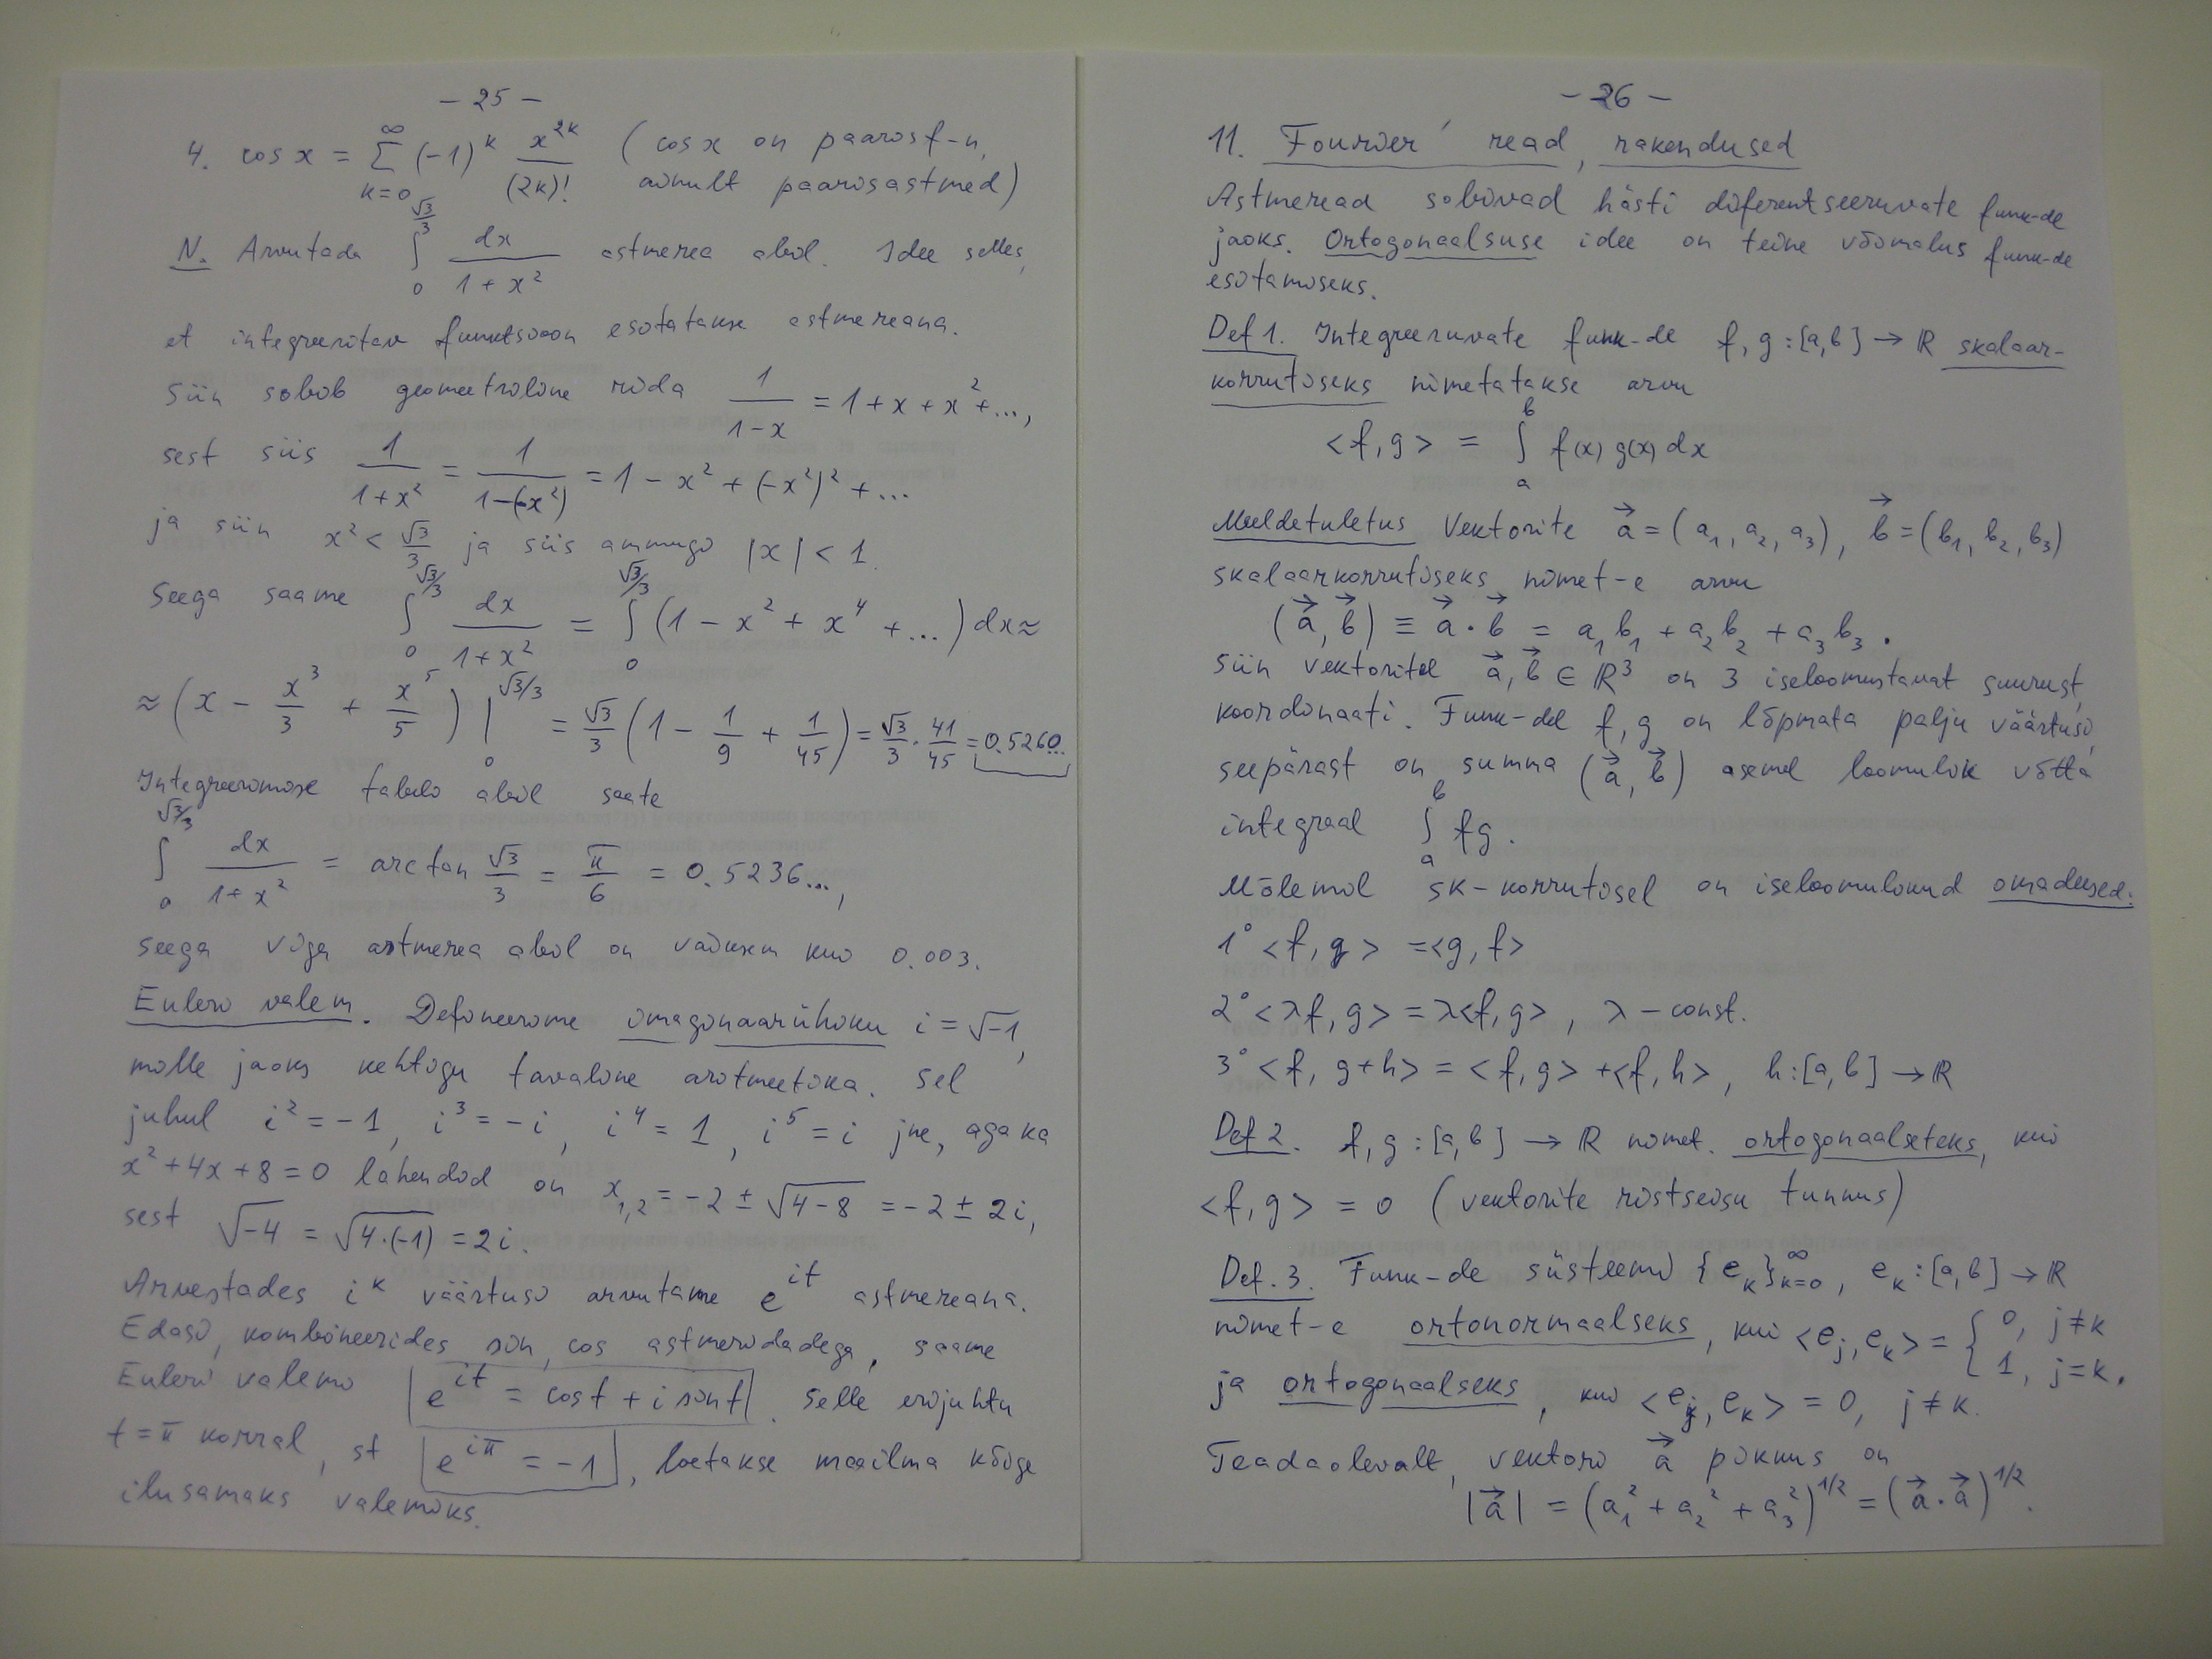 - 25 -
4. cos x = ∑_{k=0}^{∞} (-1)^k x^{2k}/(2k)! (cos x on paarisf-n,
ainult paarisastmed)
N. Arvutada ∫_0^{√3/3} dx/(1+x²) astmerea abil. Idee selles,
et integreeritav funktsioon esitatakse astmereana.
Siin sobib geomeetriline rida 1/(1-x) = 1+x+x²+...,
sest siis 1/(1+x²) = 1/(1-(-x²)) = 1 - x² + (-x²)² + ...
ja siin x² < √3/3 ja siis ammugi |x| < 1.
Seega saame ∫_0^{√3/3} dx/(1+x²) = ∫_0^{√3/3} (1 - x² + x⁴ + ...) dx ≈
≈ (x - x³/3 + x⁵/5) |_0^{√3/3} = √3/3 (1 - 1/9 + 1/45) = √3/3 · 41/45 = 0.5260...
Integreerimise tabeli abil saate
∫_0^{√3/3} dx/(1+x²) = arctan √3/3 = π/6 = 0.5236...,
seega viga astmerea abil on väiksem kui 0.003.
Euleri valem. Defineerime imaginaarühiku i = √-1,
mille jaoks kehtigu tavaline aritmeetika. Sel
juhul i² = -1, i³ = -i, i⁴ = 1, i⁵ = i jne, aga ka
x² + 4x + 8 = 0 lahendid on x_{1,2} = -2 ± √(4-8) = -2 ± 2i,
sest √-4 = √(4·(-1)) = 2i.
Arvestades i^k väärtusi arvutame e^{it} astmereana.
Edasi, kombineerides sin, cos astmeridadega, saame
Euleri valemi e^{it} = cos t + i sin t. Selle erijuhtu
t = π korral, st e^{iπ} = -1, loetakse maailma kõige
ilusamaks valemiks.
- 26 -
11. Fourier' read, rakendused
Astmeread sobivad hästi diferentseeruvate funk-de
jaoks. Ortogonaalsuse idee on teine võimalus funk-de
esitamiseks.
Def 1. Integreeruvate funk-de f, g : [a, b] → ℝ skalaar-
korrutiseks nimetatakse arvu
<f, g> = ∫_a^b f(x) g(x) dx
Meeldetuletus Vektorite a⃗ = (a₁, a₂, a₃), b⃗ = (b₁, b₂, b₃)
skalaarkorrutiseks nimet-e arvu
(a⃗, b⃗) ≡ a⃗ · b⃗ = a₁b₁ + a₂b₂ + a₃b₃.
Siin vektoritel a⃗, b⃗ ∈ ℝ³ on 3 iseloomustavat suurust,
koordinaati. Funk-del f, g on lõpmata palju väärtusi,
seepärast on summa (a⃗, b⃗) asemel loomulik võtta
integraal ∫_a^b fg.
Mõlemil sk-korrutisel on iseloomulikud omadused:
1° <f, g> = <g, f>
2° <λf, g> = λ<f, g>, λ - const.
3° <f, g+h> = <f, g> + <f, h>, h : [a, b] → ℝ
Def 2. f, g : [a, b] → ℝ nimet. ortogonaalseteks, kui
<f, g> = 0 (vektorite ristseisu tunnus)
Def. 3. Funk-de süsteemi {e_k}_{k=0}^∞, e_k : [a, b] → ℝ
nimet-e ortonormaalseks, kui <e_j, e_k> = { 0, j ≠ k
1, j = k,
ja ortogonaalseks, kui <e_j, e_k> = 0, j ≠ k.
Teadaolevalt, vektori a⃗ pikkus on
|a⃗| = (a₁² + a₂² + a₃²)^{1/2} = (a⃗ · a⃗)^{1/2}.